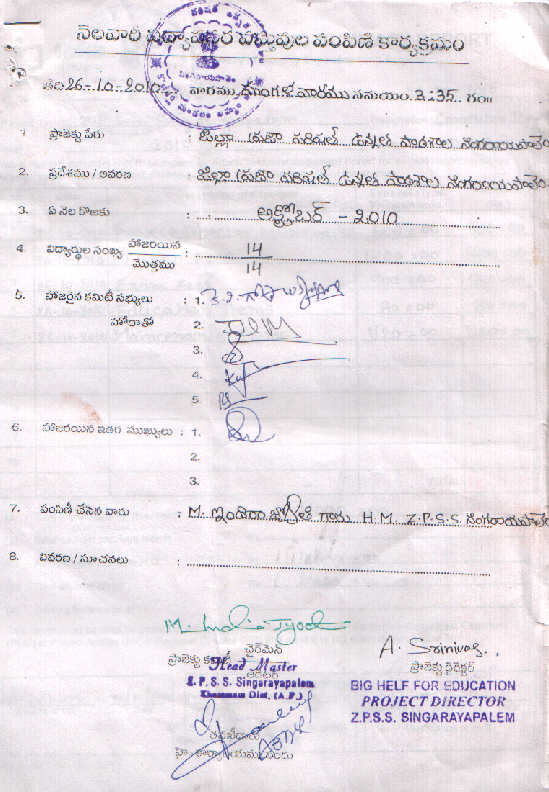 నెలవారి విద్యార్థుల వస్తువుల పంపిణి కార్యక్రమం
తేది 26-10-2010 వారము మంగళవారము సమయం 3:35 గం॥
1. ప్రాజెక్టు పేరు : జిల్లా ప్రజా పరిషత్ ఉన్నత పాఠశాల సింగరాయపాలెం
2. ప్రదేశము / వివరణ : జిల్లా ప్రజా పరిషత్ ఉన్నత పాఠశాల సింగరాయపాలెం
3. ఏ నెల కొరకు : అక్టోబర్ - 2010
4. విద్యార్థుల సంఖ్య హాజరయిన / మొత్తము : 14 / 14
5. హాజరైన కమిటీ సభ్యులు : 1.
హోదాతో 2.
3.
4.
5.
6. హాజరయిన ఇతర ముఖ్యులు : 1.
2.
3.
7. పంపిణీ చేసిన వారు : M. ఇందిరా జ్యోతి గారు H.M. Z.P.S.S. సింగరాయపాలెం
8. వివరణ / సూచనలు :
M. Indira Jyoti
చైర్మెన్
ప్రాజెక్టు కమిటీ
Head Master
Z. P. S. S. Singarayapalem
Khammam Dist. (A.P.)
A. Srinivas
ప్రాజెక్టు డైరెక్టర్
BIG HELF FOR EDUCATION
PROJECT DIRECTOR
Z.P.S.S. SINGARAYAPALEM